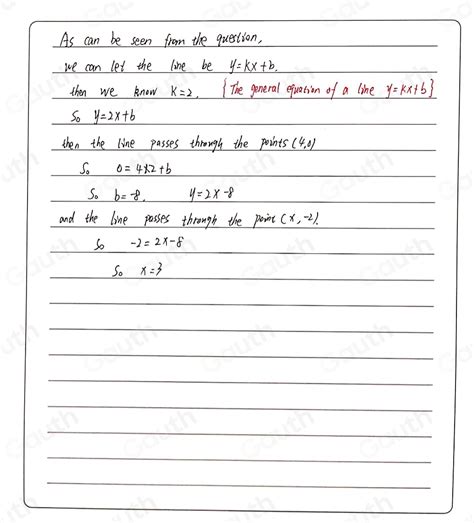 As can be seen from the question,
we can let the line be y=kx+b.
then we know k=2. {The general equation of a line y=kx+b}
So y=2x+b
then the line passes through the points (4,0)
So 0=4×2+b
So b=-8. y=2x-8
and the line passes through the point (x,-2).
So -2=2x-8
So x=3